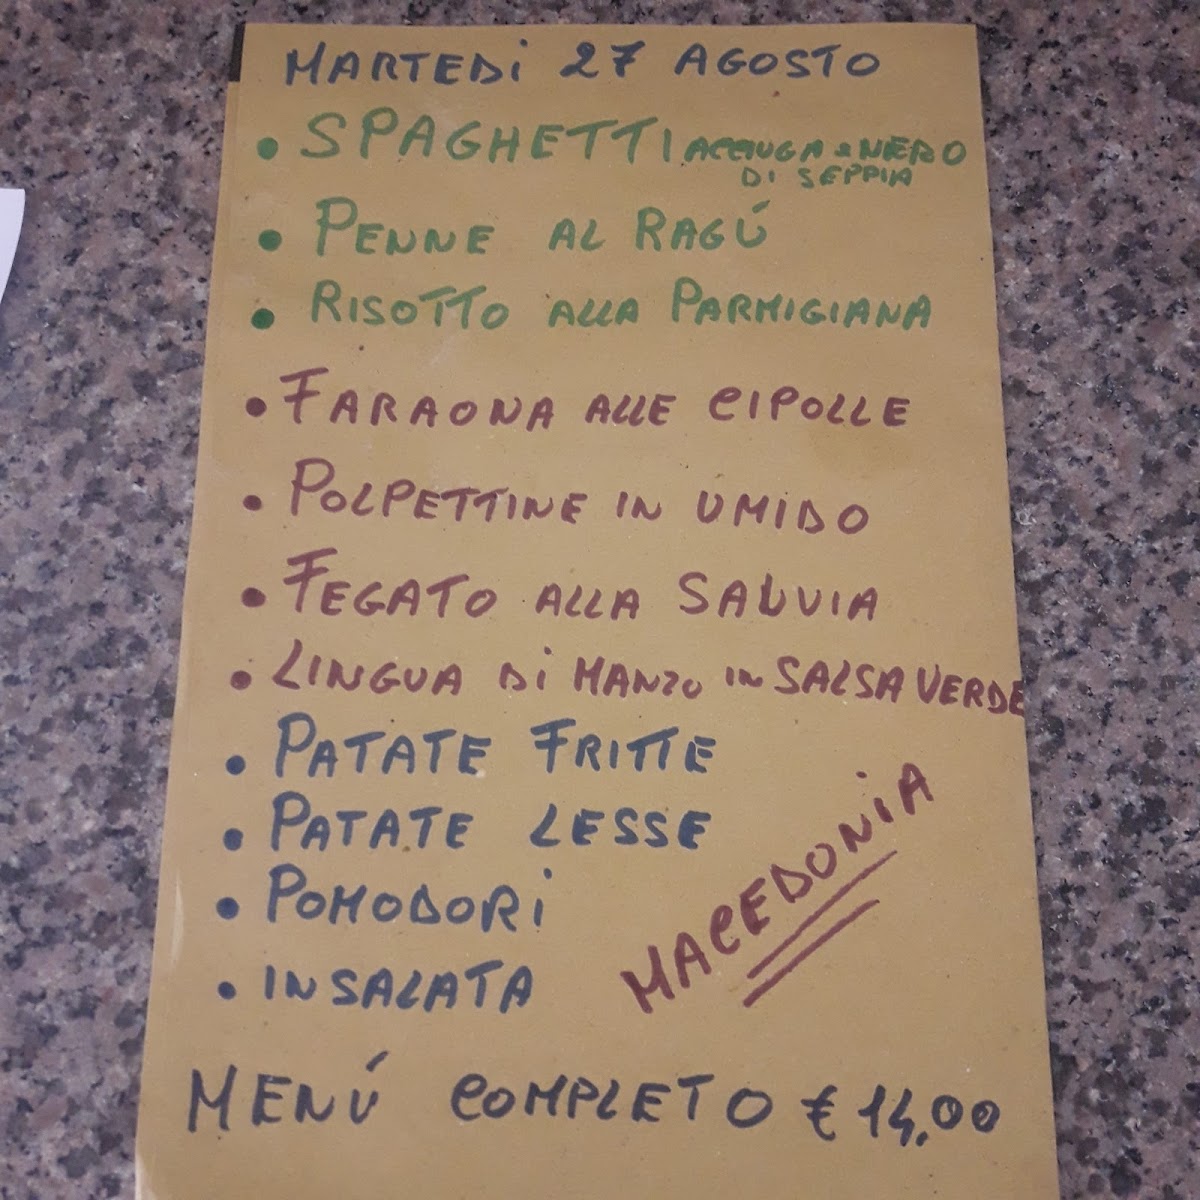 MARTEDI 27 AGOSTO
• SPAGHETTI ACCIUGA e NERO
DI SEPPIA
• PENNE AL RAGÚ
• RISOTTO ALLA PARMIGIANA
• FARAONA ALLE CIPOLLE
• POLPETTINE IN UMIDO
• FEGATO ALLA SALVIA
• LINGUA DI MANZO IN SALSA VERDE
• PATATE FRITTE
• PATATE LESSE
• POMODORI
• INSALATA
MACEDONIA
MENÚ COMPLETO € 14,00